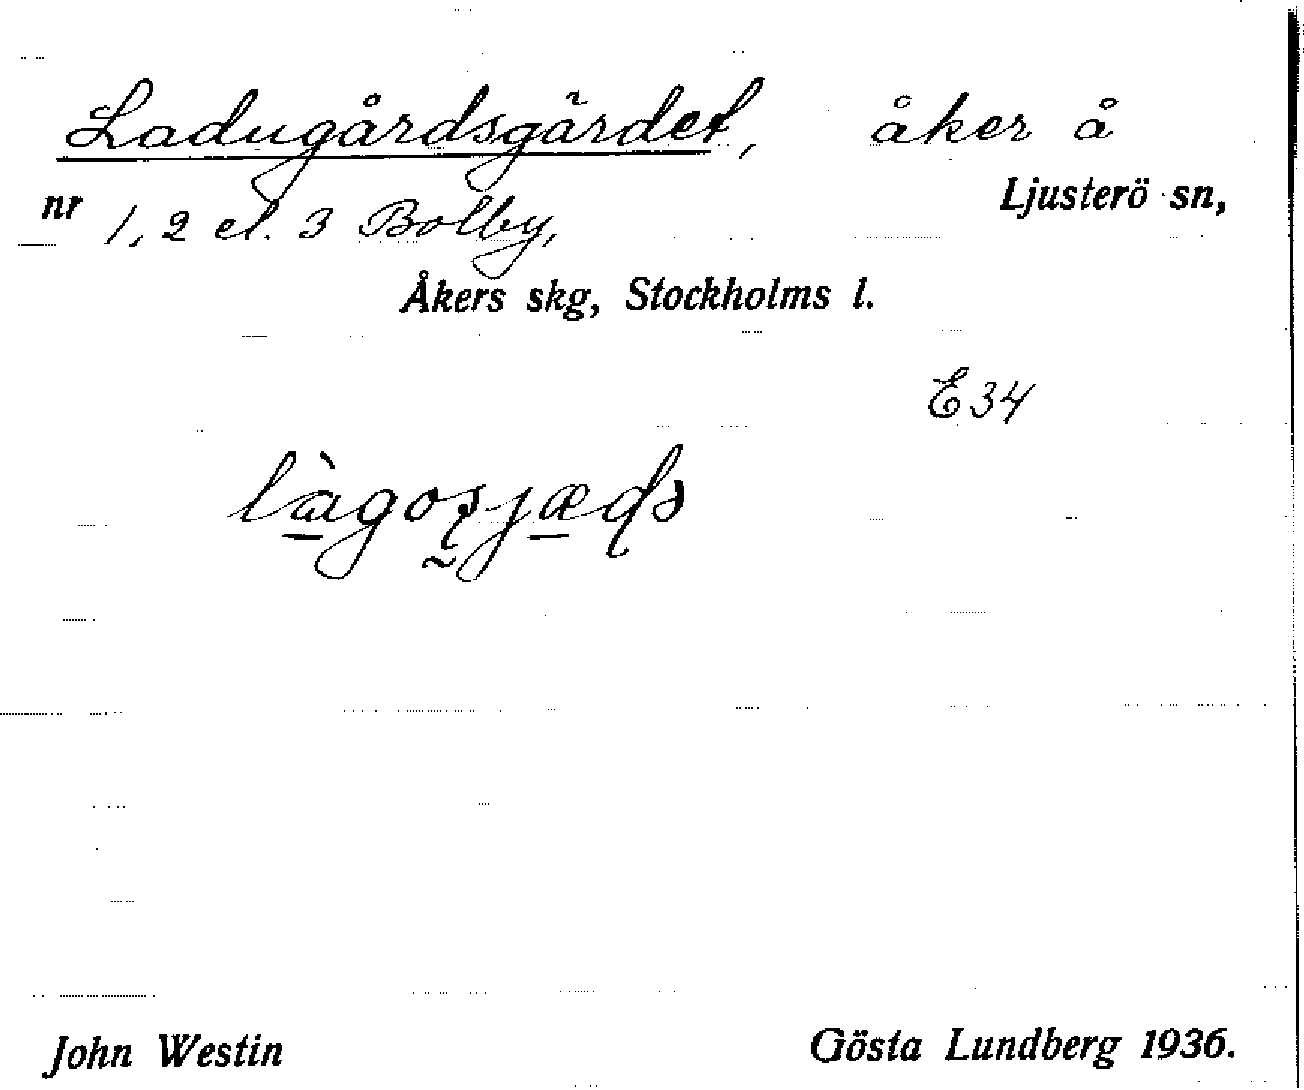 Ladugårdsgärdet, åker å
nr 1, 2 el. 3 Bolby, Ljusterö sn,
Åkers skg, Stockholms l.
E34
John Westin Gösta Lundberg 1936.